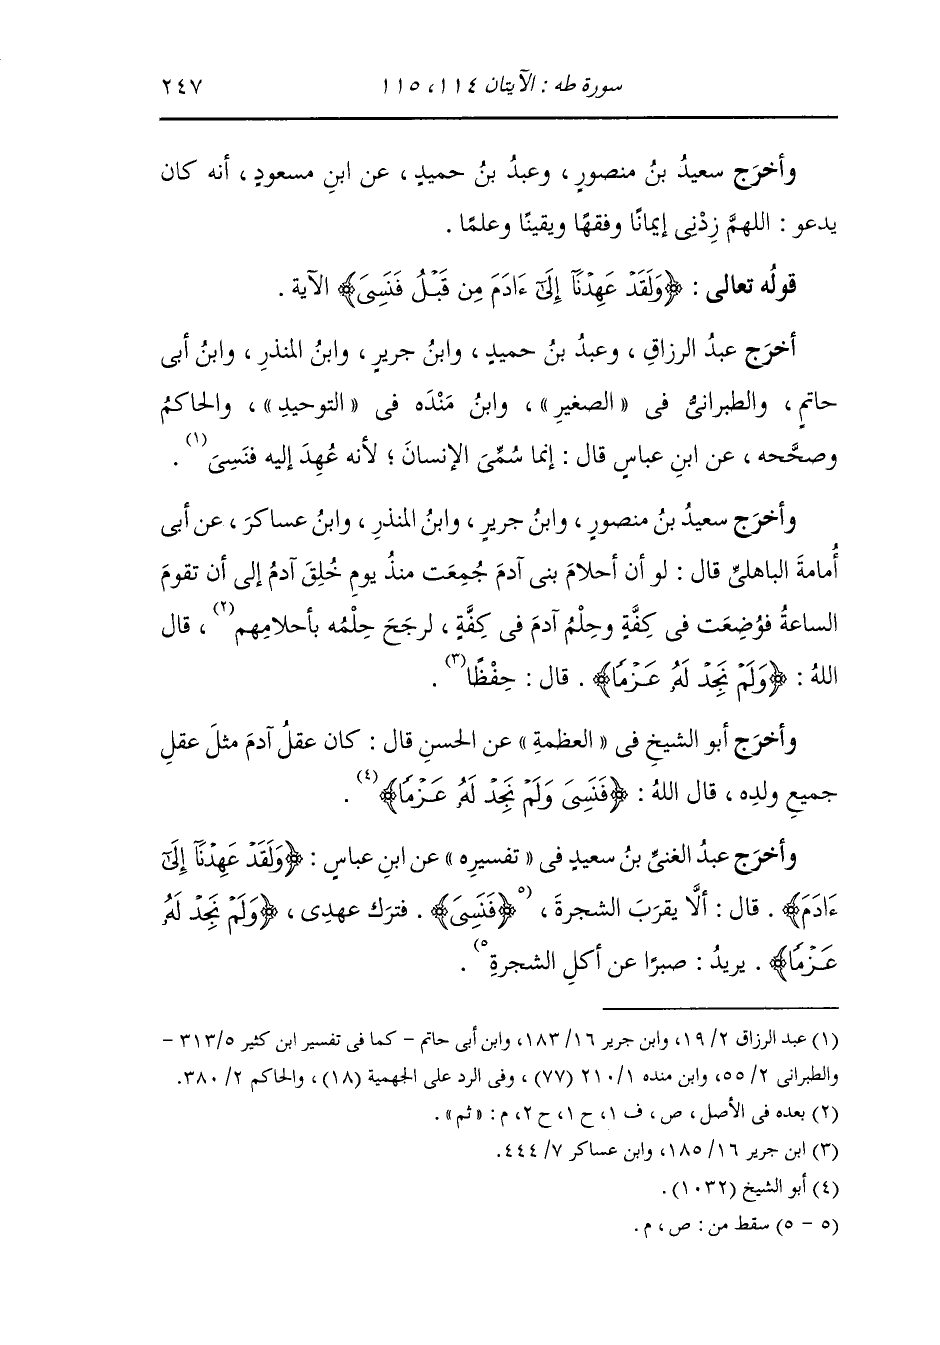 سورة طه : الآيتان ١١٤، ١١٥ ٢٤٧
وأخرَج سعيدُ بنُ منصورٍ ، وعبدُ بنُ حميدٍ ، عن ابنِ مسعودٍ ، أنه كان
يدعو : اللهمَّ زِدْنِى إيمانًا وفقهًا ويقينًا وعلمًا .
قولُه تعالى : ﴿وَلَقَدْ عَهِدْنَآ إِلَىٰٓ ءَادَمَ مِن قَبْلُ فَنَسِىَ﴾ الآية .
أخرَج عبدُ الرزاقِ ، وعبدُ بنُ حميدٍ ، وابنُ جريرٍ ، وابنُ المنذرِ ، وابنُ أبى
حاتمٍ ، والطبرانىُّ فى « الصغيرِ » ، وابنُ مَنْدَه فى « التوحيدِ » ، والحاكمُ
وصحَّحه ، عن ابنِ عباسٍ قال : إنما سُمِّىَ الإنسانَ ؛ لأنه عُهِدَ إليه فنَسِىَ(١) .
وأخرَج سعيدُ بنُ منصورٍ ، وابنُ جريرٍ ، وابنُ المنذرِ ، وابنُ عساكرَ ، عن أبى
أُمامةَ الباهلىِّ قال : لو أن أحلامَ بنى آدمَ جُمِعَت منذُ يومِ خُلِقَ آدمُ إلى أن تقومَ
الساعةُ فوُضِعَت فى كِفَّةٍ وحِلْمُ آدمَ فى كِفَّةٍ ، لرجَحَ حِلْمُه بأحلامِهم(٢) ، قال
اللهُ : ﴿وَلَمْ نَجِدْ لَهُۥ عَزْمًا﴾ . قال : حِفْظًا(٣) .
وأخرَج أبو الشيخِ فى « العظمةِ » عن الحسنِ قال : كان عقلُ آدمَ مثلَ عقلِ
جميعِ ولدِه ، قال اللهُ : ﴿فَنَسِىَ وَلَمْ نَجِدْ لَهُۥ عَزْمًا﴾(٤) .
وأخرَج عبدُ الغنىِّ بنُ سعيدٍ فى « تفسيرِه » عن ابنِ عباسٍ : ﴿وَلَقَدْ عَهِدْنَآ إِلَىٰٓ
ءَادَمَ﴾ . قال : ألَّا يقرَبَ الشجرةَ ، (٥﴿فَنَسِىَ﴾ . فترَك عهدِى ، ﴿وَلَمْ نَجِدْ لَهُۥ
عَزْمًا﴾ . يريدُ : صبرًا عن أكلِ الشجرةِ٥) .
(١) عبد الرزاق ٢/ ١٩، وابن جرير ١٦/ ١٨٣، وابن أبى حاتم - كما فى تفسير ابن كثير ٣١٣/٥ -
والطبرانى ٢/ ٥٥، وابن منده ١/ ٢١٠ (٧٧) ، وفى الرد على الجهمية (١٨) ، والحاكم ٢/ ٣٨٠.
(٢) بعده فى الأصل ، ص ، ف ١، ح ١، ح ٢، م : « ثم » .
(٣) ابن جرير ١٦/ ١٨٥، وابن عساكر ٧/ ٤٤٤.
(٤) أبو الشيخ (١٠٣٢) .
(٥ - ٥) سقط من : ص ، م .